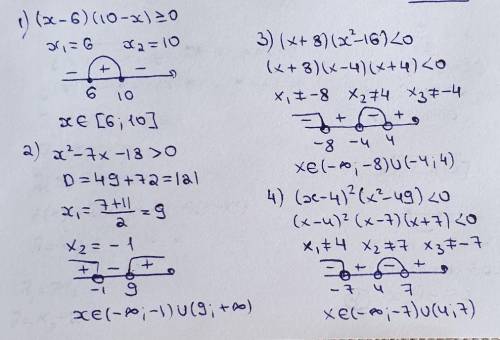 1) (x-6)(10-x)≥0
x₁=6 x₂=10
- + -
6 10
x∈[6;10]
2) x²-7x-18>0
D=49+72=121
x₁=7+11/2=9
x₂=-1
+ - +
-1 9
x∈(-∞;-1)∪(9;+∞)
3) (x+8)(x²-16)<0
(x+8)(x-4)(x+4)<0
x₁≠-8 x₂≠4 x₃≠-4
- + - +
-8 -4 4
x∈(-∞;-8)∪(-4;4)
4) (x-4)²(x²-49)<0
(x-4)²(x-7)(x+7)<0
x₁≠4 x₂≠7 x₃≠-7
+ - +
-7 4 7
x∈(-∞;-7)∪(4;7)